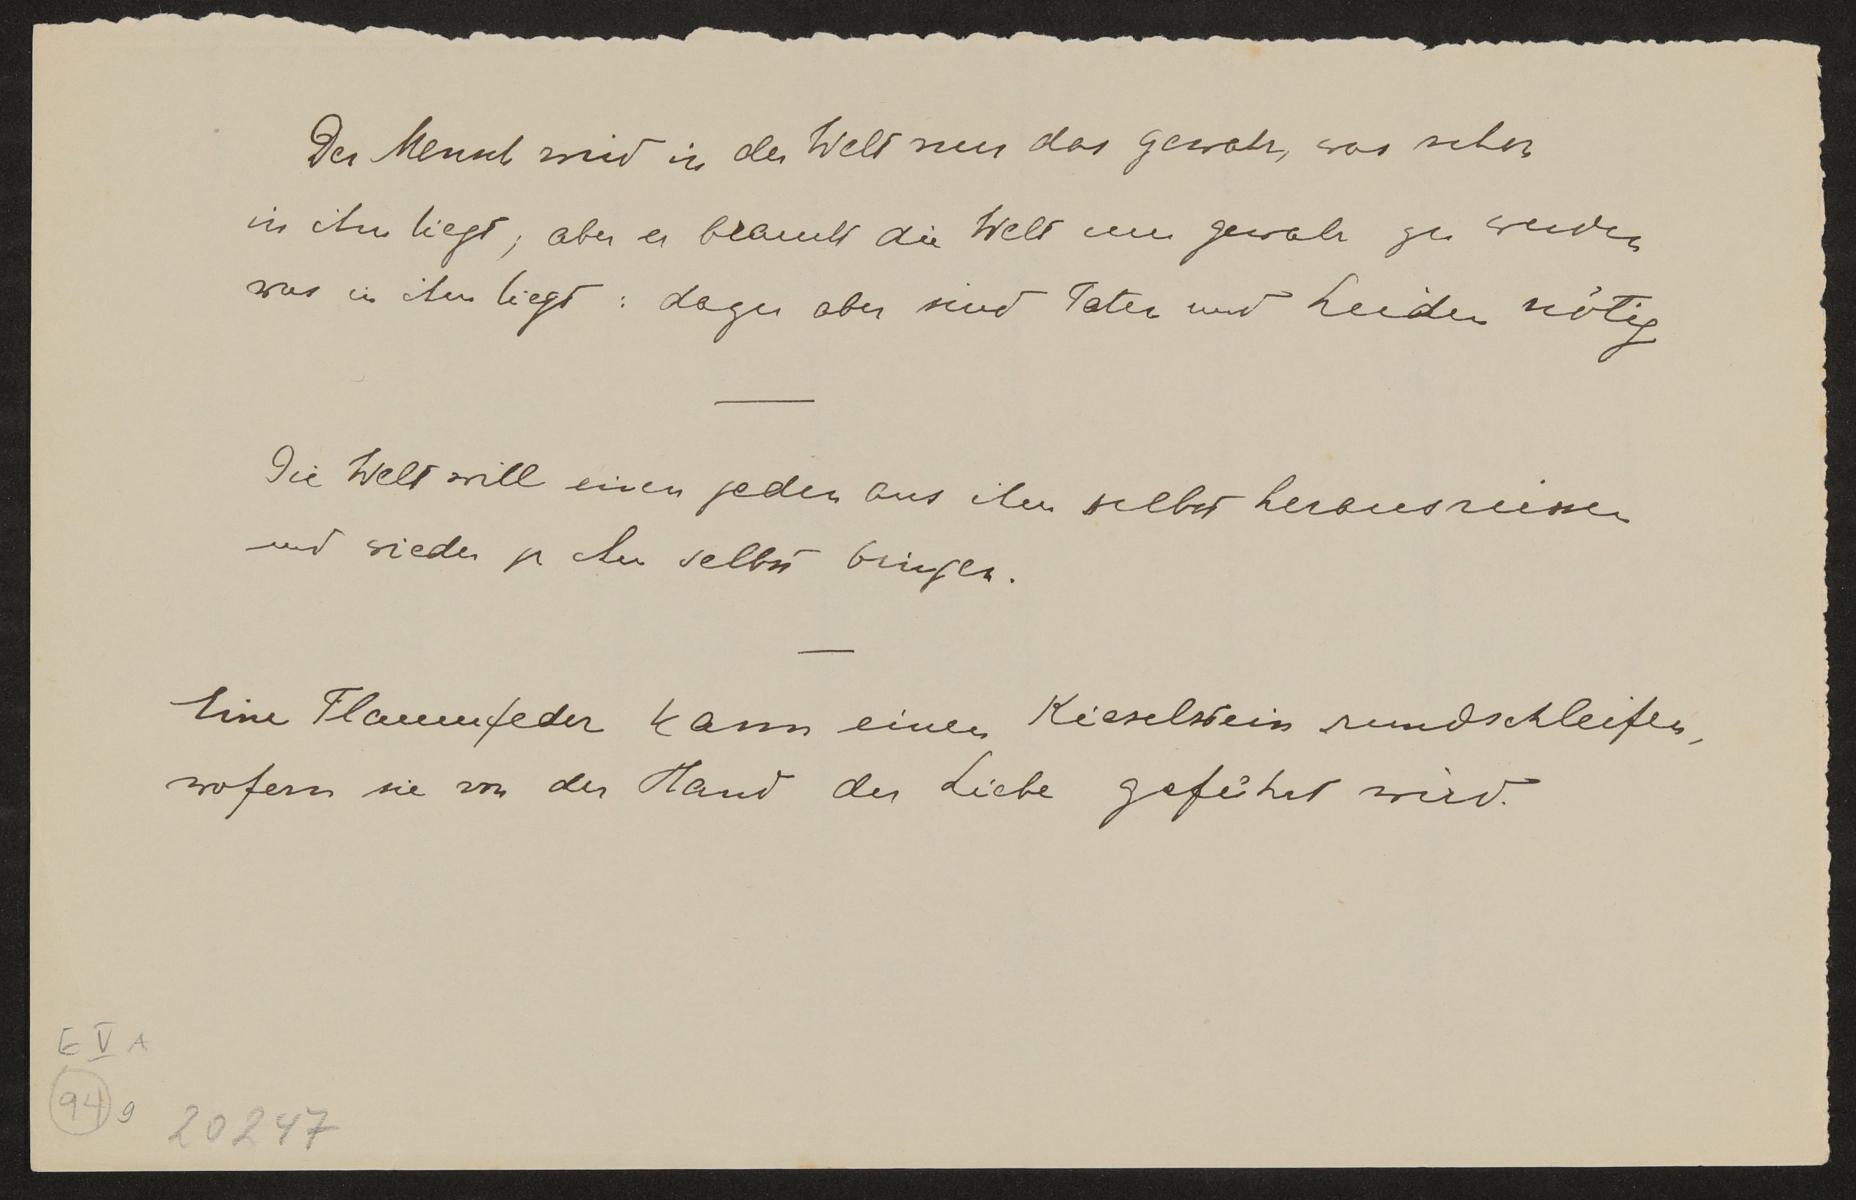 Der Mensch wird in der Welt nur das gewahr, was schon
in ihm liegt; aber er braucht die Welt um gewahr zu werden
was in ihm liegt: dazu aber sind Taten und Leiden nötig
Die Welt will einen jeden aus ihm selbst herausreissen
und wieder zu ihm selbst bringen.
Eine Flaumfeder kann einen Kieselstein rundschleifen,
wofern sie von der Hand der Liebe geführt wird.
E V A
94 g 20247